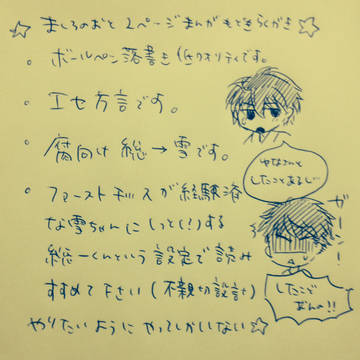 ☆ ましろのおと 2ページまんがもどきらくがき ☆
• ボールペン落書き(低クオリティです。
• エセ方言です。
• 腐向け 総→雪です。
• ファーストキスが経験済
な雪ちゃんにしっと(!)する
総一くんという設定で読み
すすめて下さい(不親切設計)
やりたいようにやってしかいない☆
ゆなさんと
したことあるし…
ガーン
したこと
あんの!!